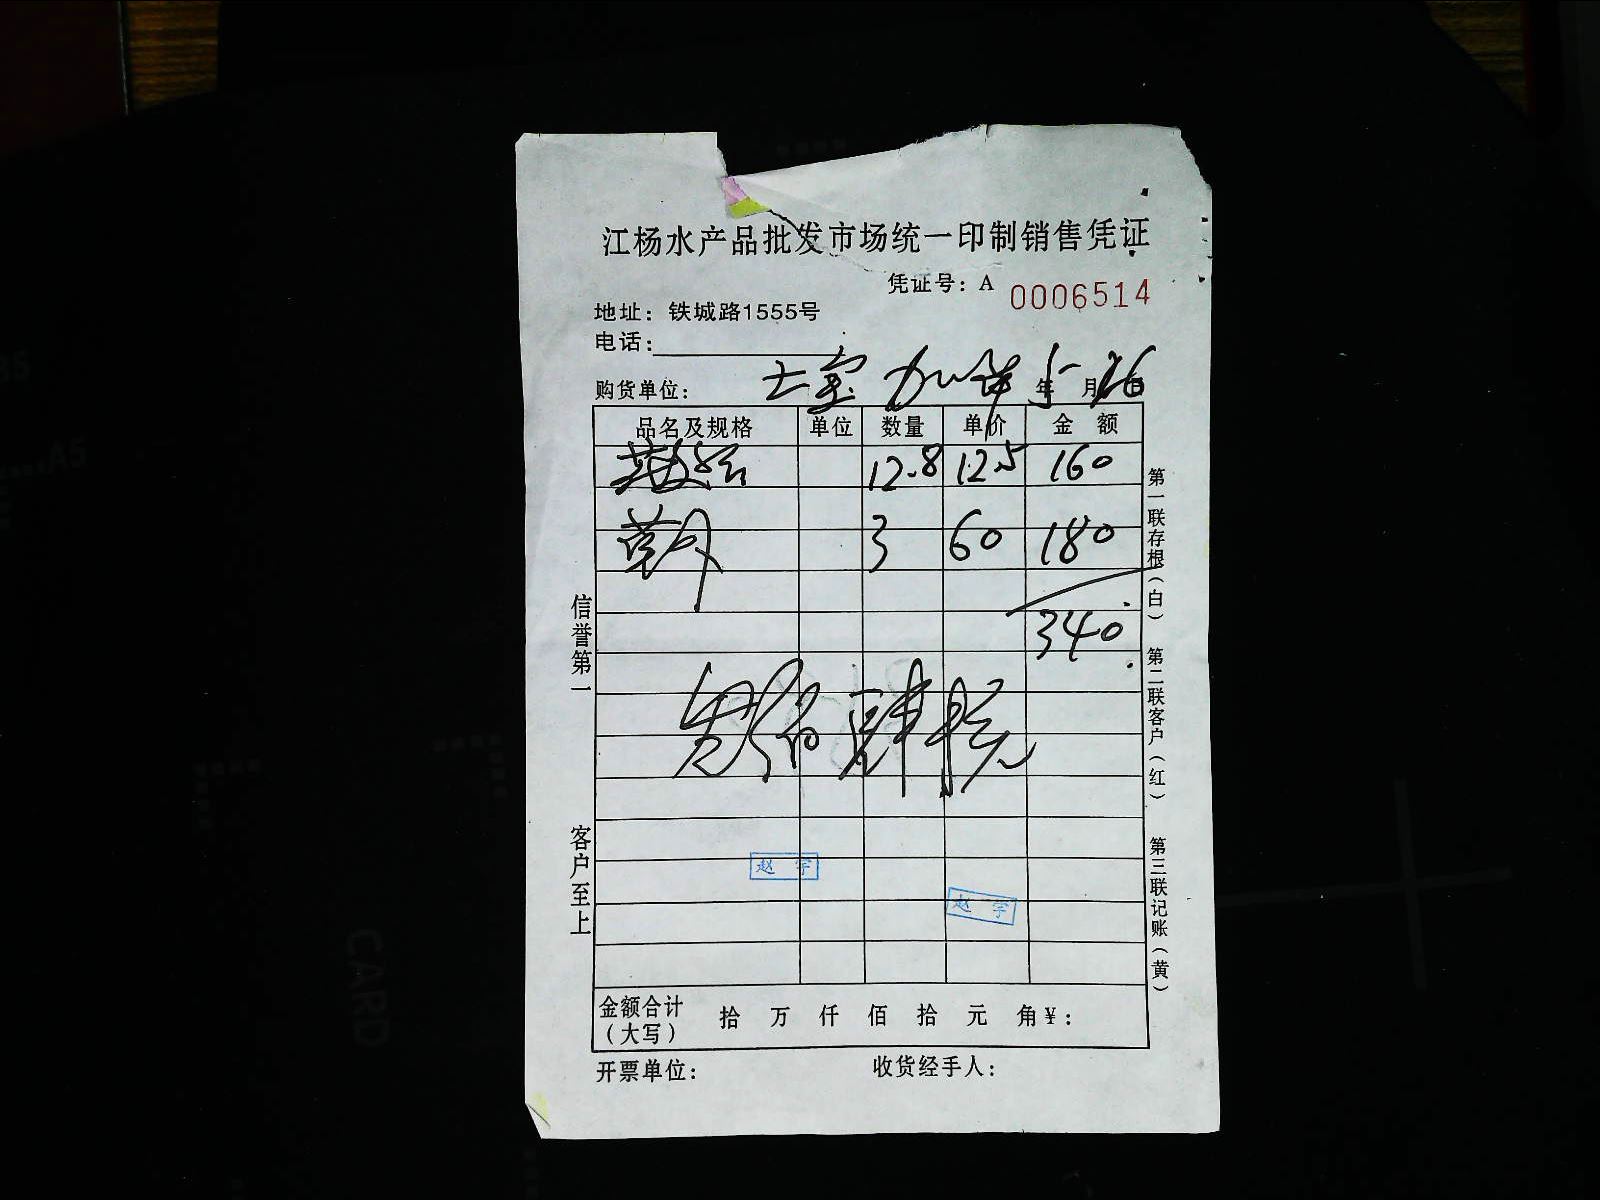 江杨水产品批发市场统一印制销售凭证
凭证号：A 0006514
地址：铁城路1555号
电话：
购货单位： 年 5 月 26 日
品名及规格 单位 数量 单价 金 额
12.8 12.5 160
3 60 180
340
叁佰肆拾元
赵 宇
赵 宇
金额合计（大写） 拾 万 仟 佰 拾 元 角 ¥：
开票单位： 收货经手人：
信誉第一
客户至上
第一联存根（白）
第二联客户（红）
第三联记账（黄）
CARD
A5